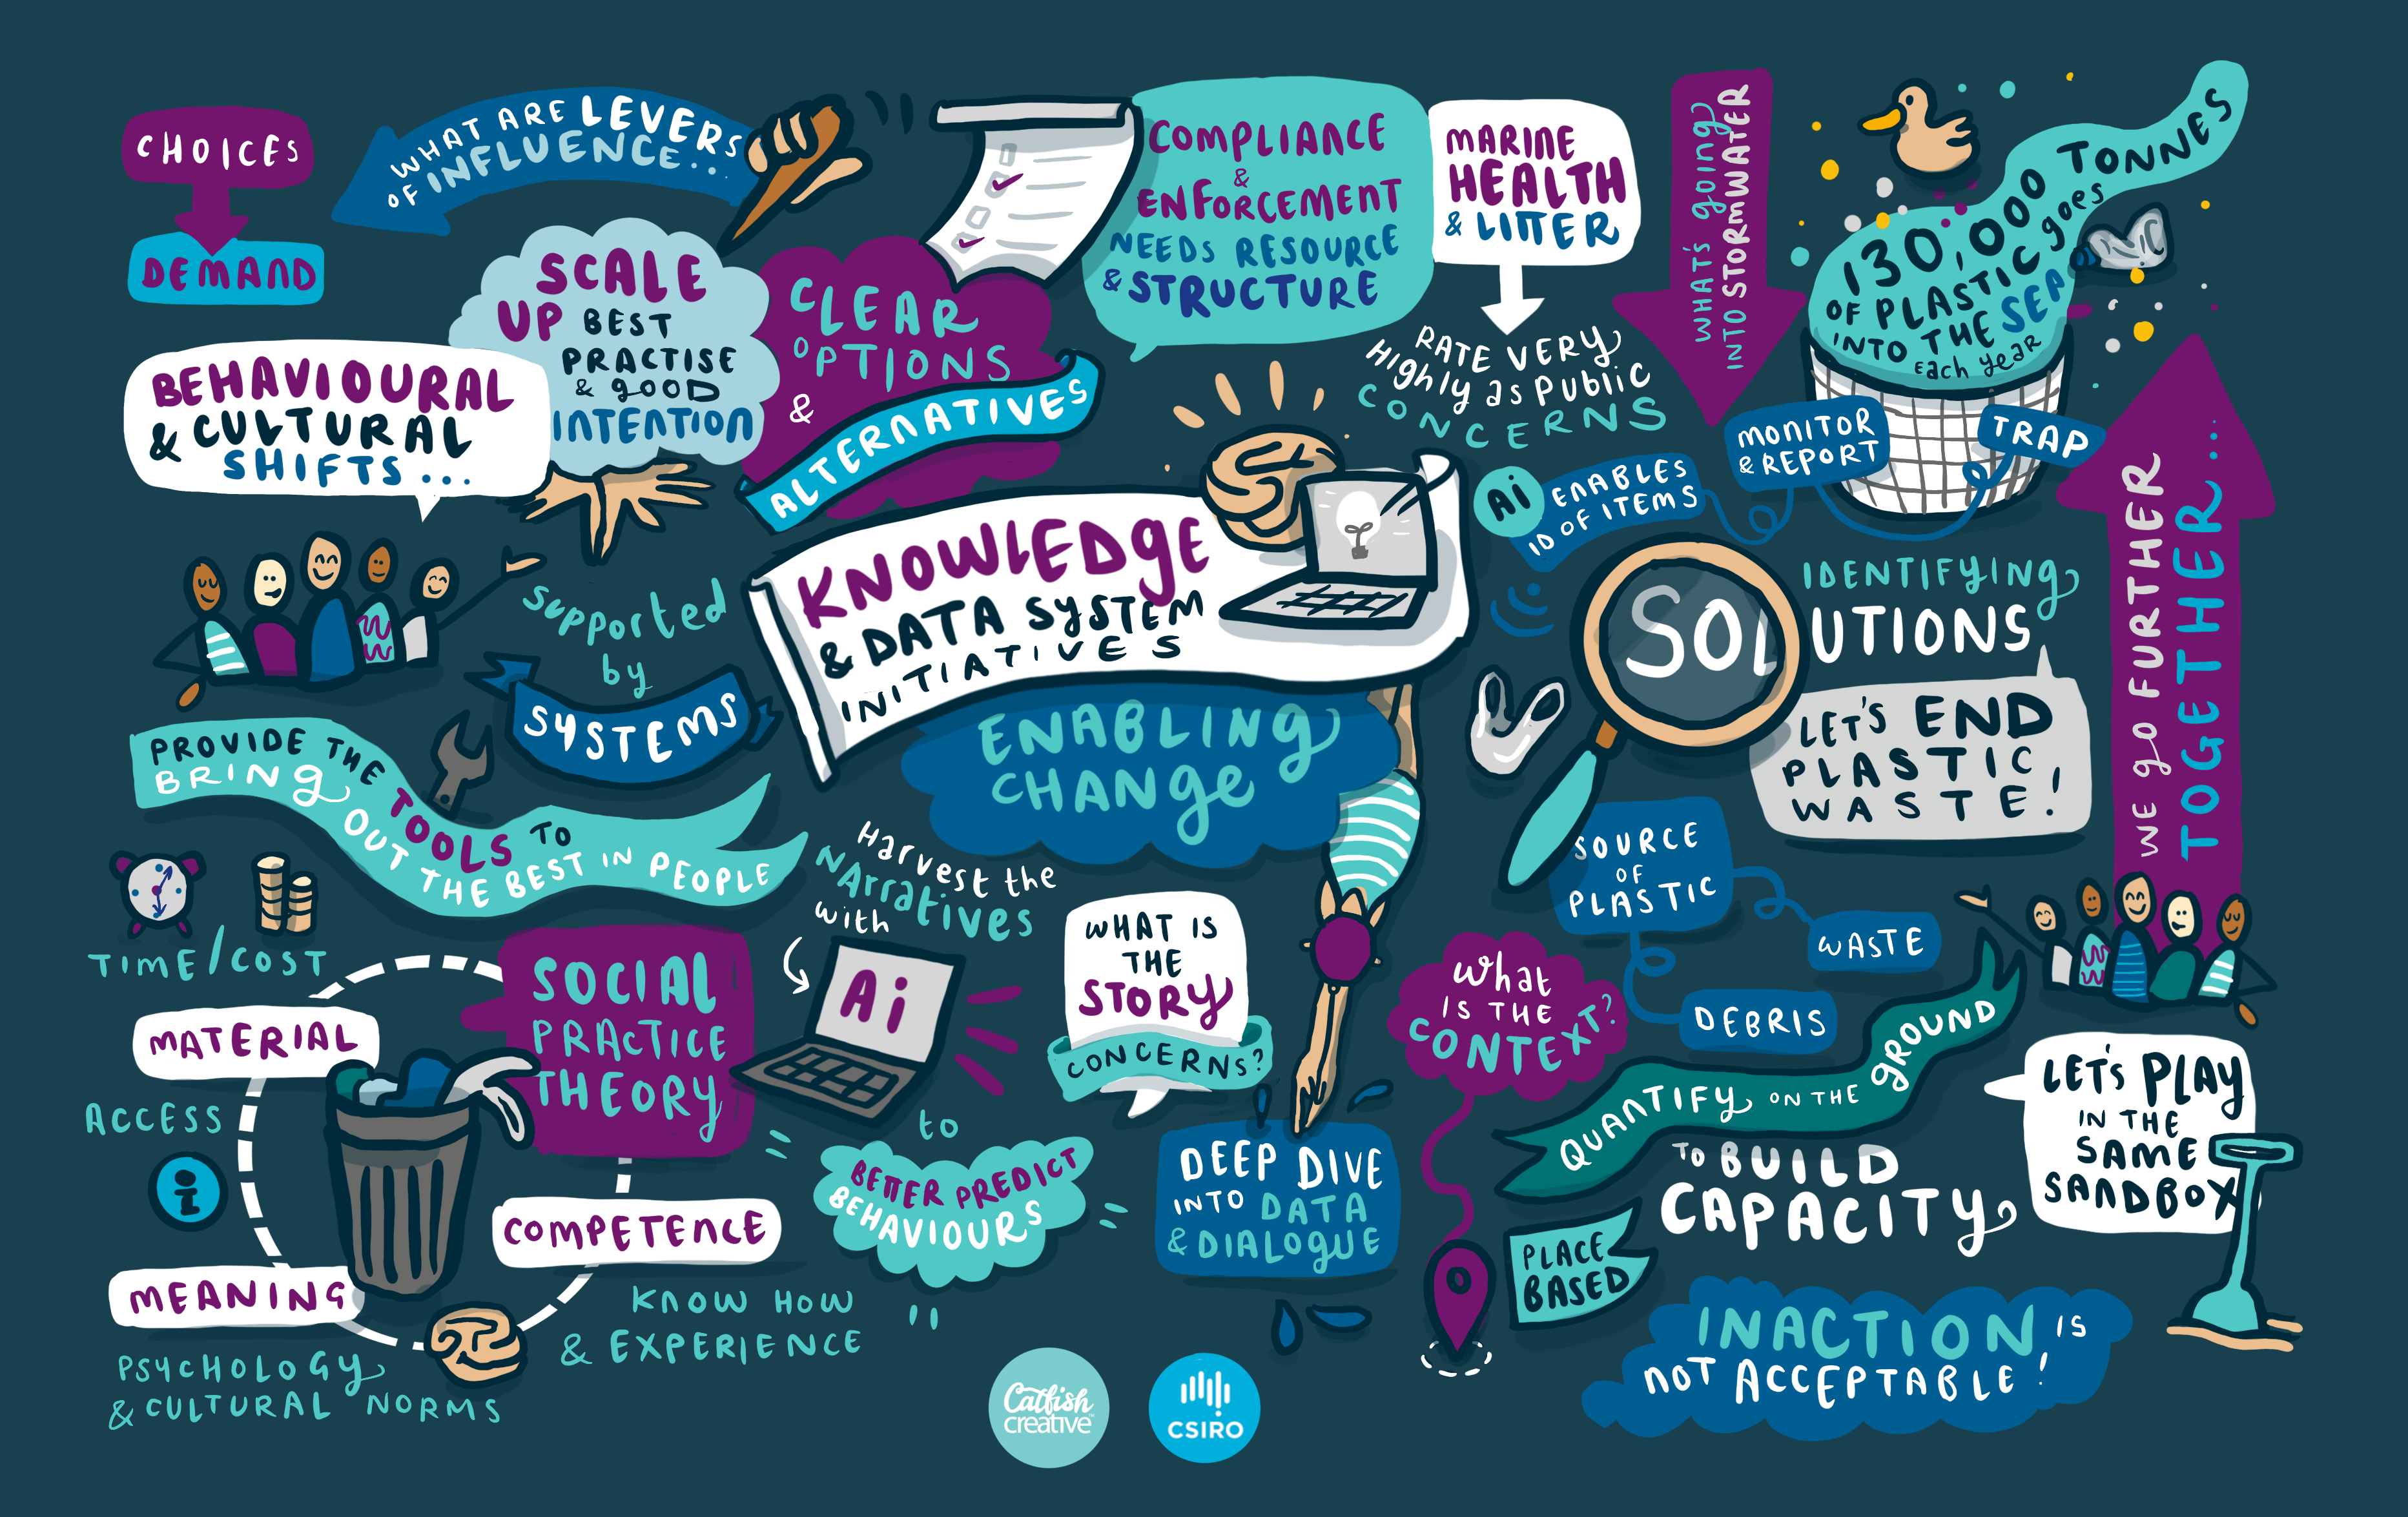 CHOICES
DEMAND
WHAT ARE LEVERS
OF INFLUENCE...
SCALE
UP BEST
PRACTISE
& GOOD
INTENTION
BEHAVIOURAL
& CULTURAL
SHIFTS...
CLEAR
OPTIONS
&
ALTERNATIVES
COMPLIANCE
&
ENFORCEMENT
NEEDS RESOURCE
& STRUCTURE
MARINE
HEALTH
& LITTER
RATE VERY
HIGHLY as PUBLIC
CONCERNS
WHAT'S going
INTO STORMWATER
130,000 TONNES
OF PLASTIC goes
INTO THE SEA
Each year
MONITOR
& REPORT
TRAP
Ai
ENABLES
ID OF ITEMS
supported
by
SYSTEMS
KNOWLEDGE
& DATA SYSTEM
INITIATIVES
ENABLING
CHANGE
IDENTIFYING
SOLUTIONS
LET'S END
PLASTIC
WASTE!
WE GO FURTHER
TOGETHER...
PROVIDE THE TOOLS TO
BRING OUT THE BEST IN PEOPLE
TIME/COST
MATERIAL
ACCESS
i
MEANING
PSYCHOLOGY
& CULTURAL NORMS
SOCIAL
PRACTICE
THEORY
COMPETENCE
KNOW HOW
& EXPERIENCE
Harvest the
NArratives
with
Ai
to
BETTER PREDICT
BEHAVIOURS
WHAT IS
THE
STORY
CONCERNS?
DEEP DIVE
INTO DATA
& DIALOGUE
SOURCE
OF
PLASTIC
WASTE
DEBRIS
What
IS THE
CONTEXT?
QUANTIFY ON THE GROUND
TO BUILD
CAPACITY
PLACE
BASED
LET'S PLAY
IN THE
SAME
SANDBOX
INACTION IS
NOT ACCEPTABLE!
Catfish
creative
CSIRO